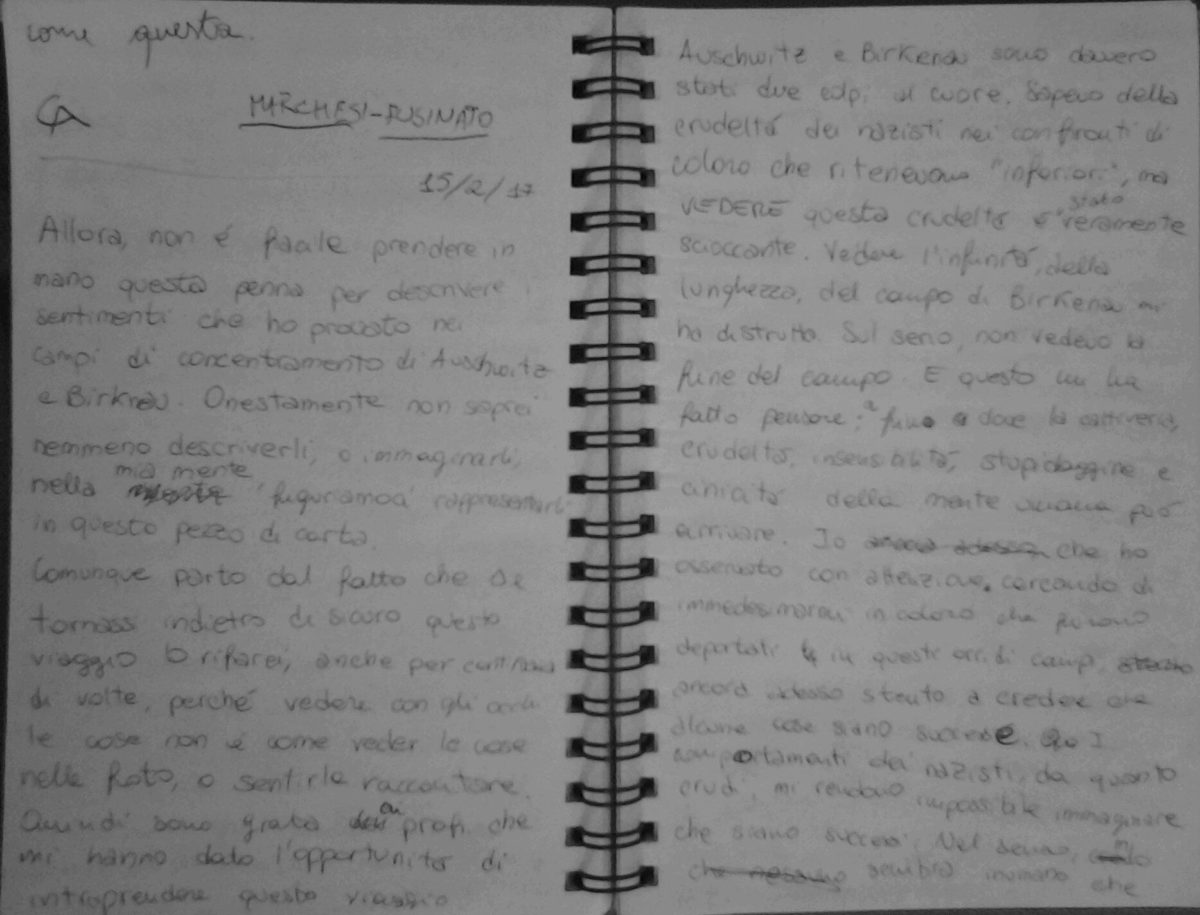 come questa.
MARCHESI-FUSINATO
15/2/17
Allora, non é facile prendere in
mano questa penna per descrivere i
sentimenti che ho provato nei
campi di concentramento di Auschwitz
e Birknau. Onestamente non saprei
nemmeno descriverli, o immaginarli,
nella mia mente figuriamoci rappresentarli
in questo pezzo di carta.
Comunque parto dal fatto che se
tornassi indietro di sicuro questo
viaggio lo rifarei, anche per centinaia
di volte, perché vedere con gli occhi
le cose non é come veder le cose
nelle foto, o sentirle raccontare.
Quindi sono grata ai profi. che
mi hanno dato l'opportunità di
intraprendere questo viaggio
Auschwitz e Birkenau sono davvero
stati due colpi al cuore. Sapevo della
crudeltá dei nazisti nei confronti di
coloro che ritenevano "inferiori", ma
VEDERE questa crudeltà é stato veramente
scioccante. Vedere l'infinitá, della
lunghezza, del campo di Birkenau mi
ha distrutto. Sul serio, non vedevo la
fine del campo. E questo mi ha
fatto pensare: a fino a dove la cattiveria,
crudeltà, insensibilità, stupidaggine e
della mente umana può
arrivare. Io che ho
osservato con attenzione, cercando di
immedesimarmi in coloro che furono
deportati in questi orridi campi,
ancora adesso stento a credere che
alcune cose siano successe. I
comportamenti dei nazisti, da quanto
crudi, mi rendono impossibile immaginare
che siano successi. Nel senso,
sembra inumano che